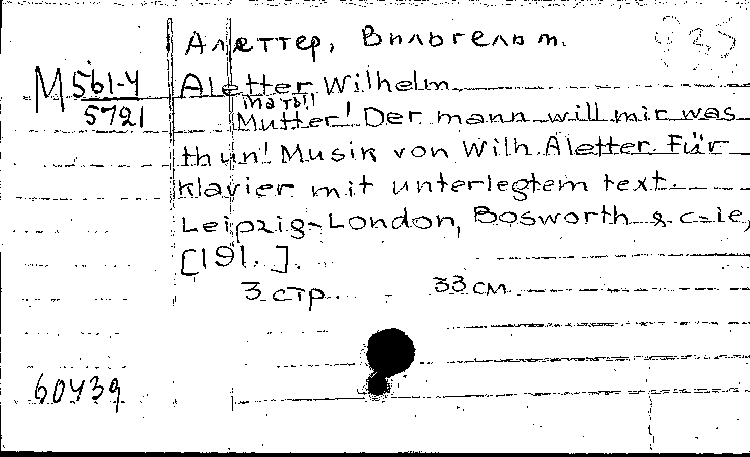 935
Алеттер, Вильгельm.
M 561-4
5721
Aletter Wilhelm
Mutter! Der mann will mir was
thun! Musik von Wilh. Aletter. Für
Klavier mit unterlegtem text.
Leipzig-London, Bosworth & c-ie,
[191. ].
3 стр. 33 см.
60439